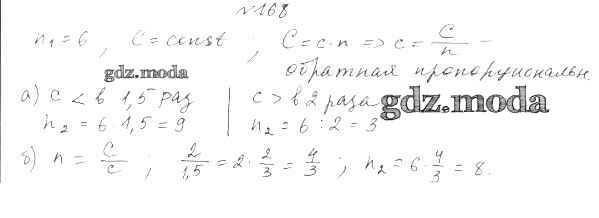 №168
n₁=6, C=const; C=c·n => c=C/n –
обратная пропорциональн
gdz.moda
а) c < в 1,5 раз | c > в 2 раза
gdz.moda
n₂ = 6·1,5 = 9 | n₂ = 6:2 = 3
б) n = C/c; 2/1,5 = 2·2/3 = 4/3; n₂ = 6·4/3 = 8.